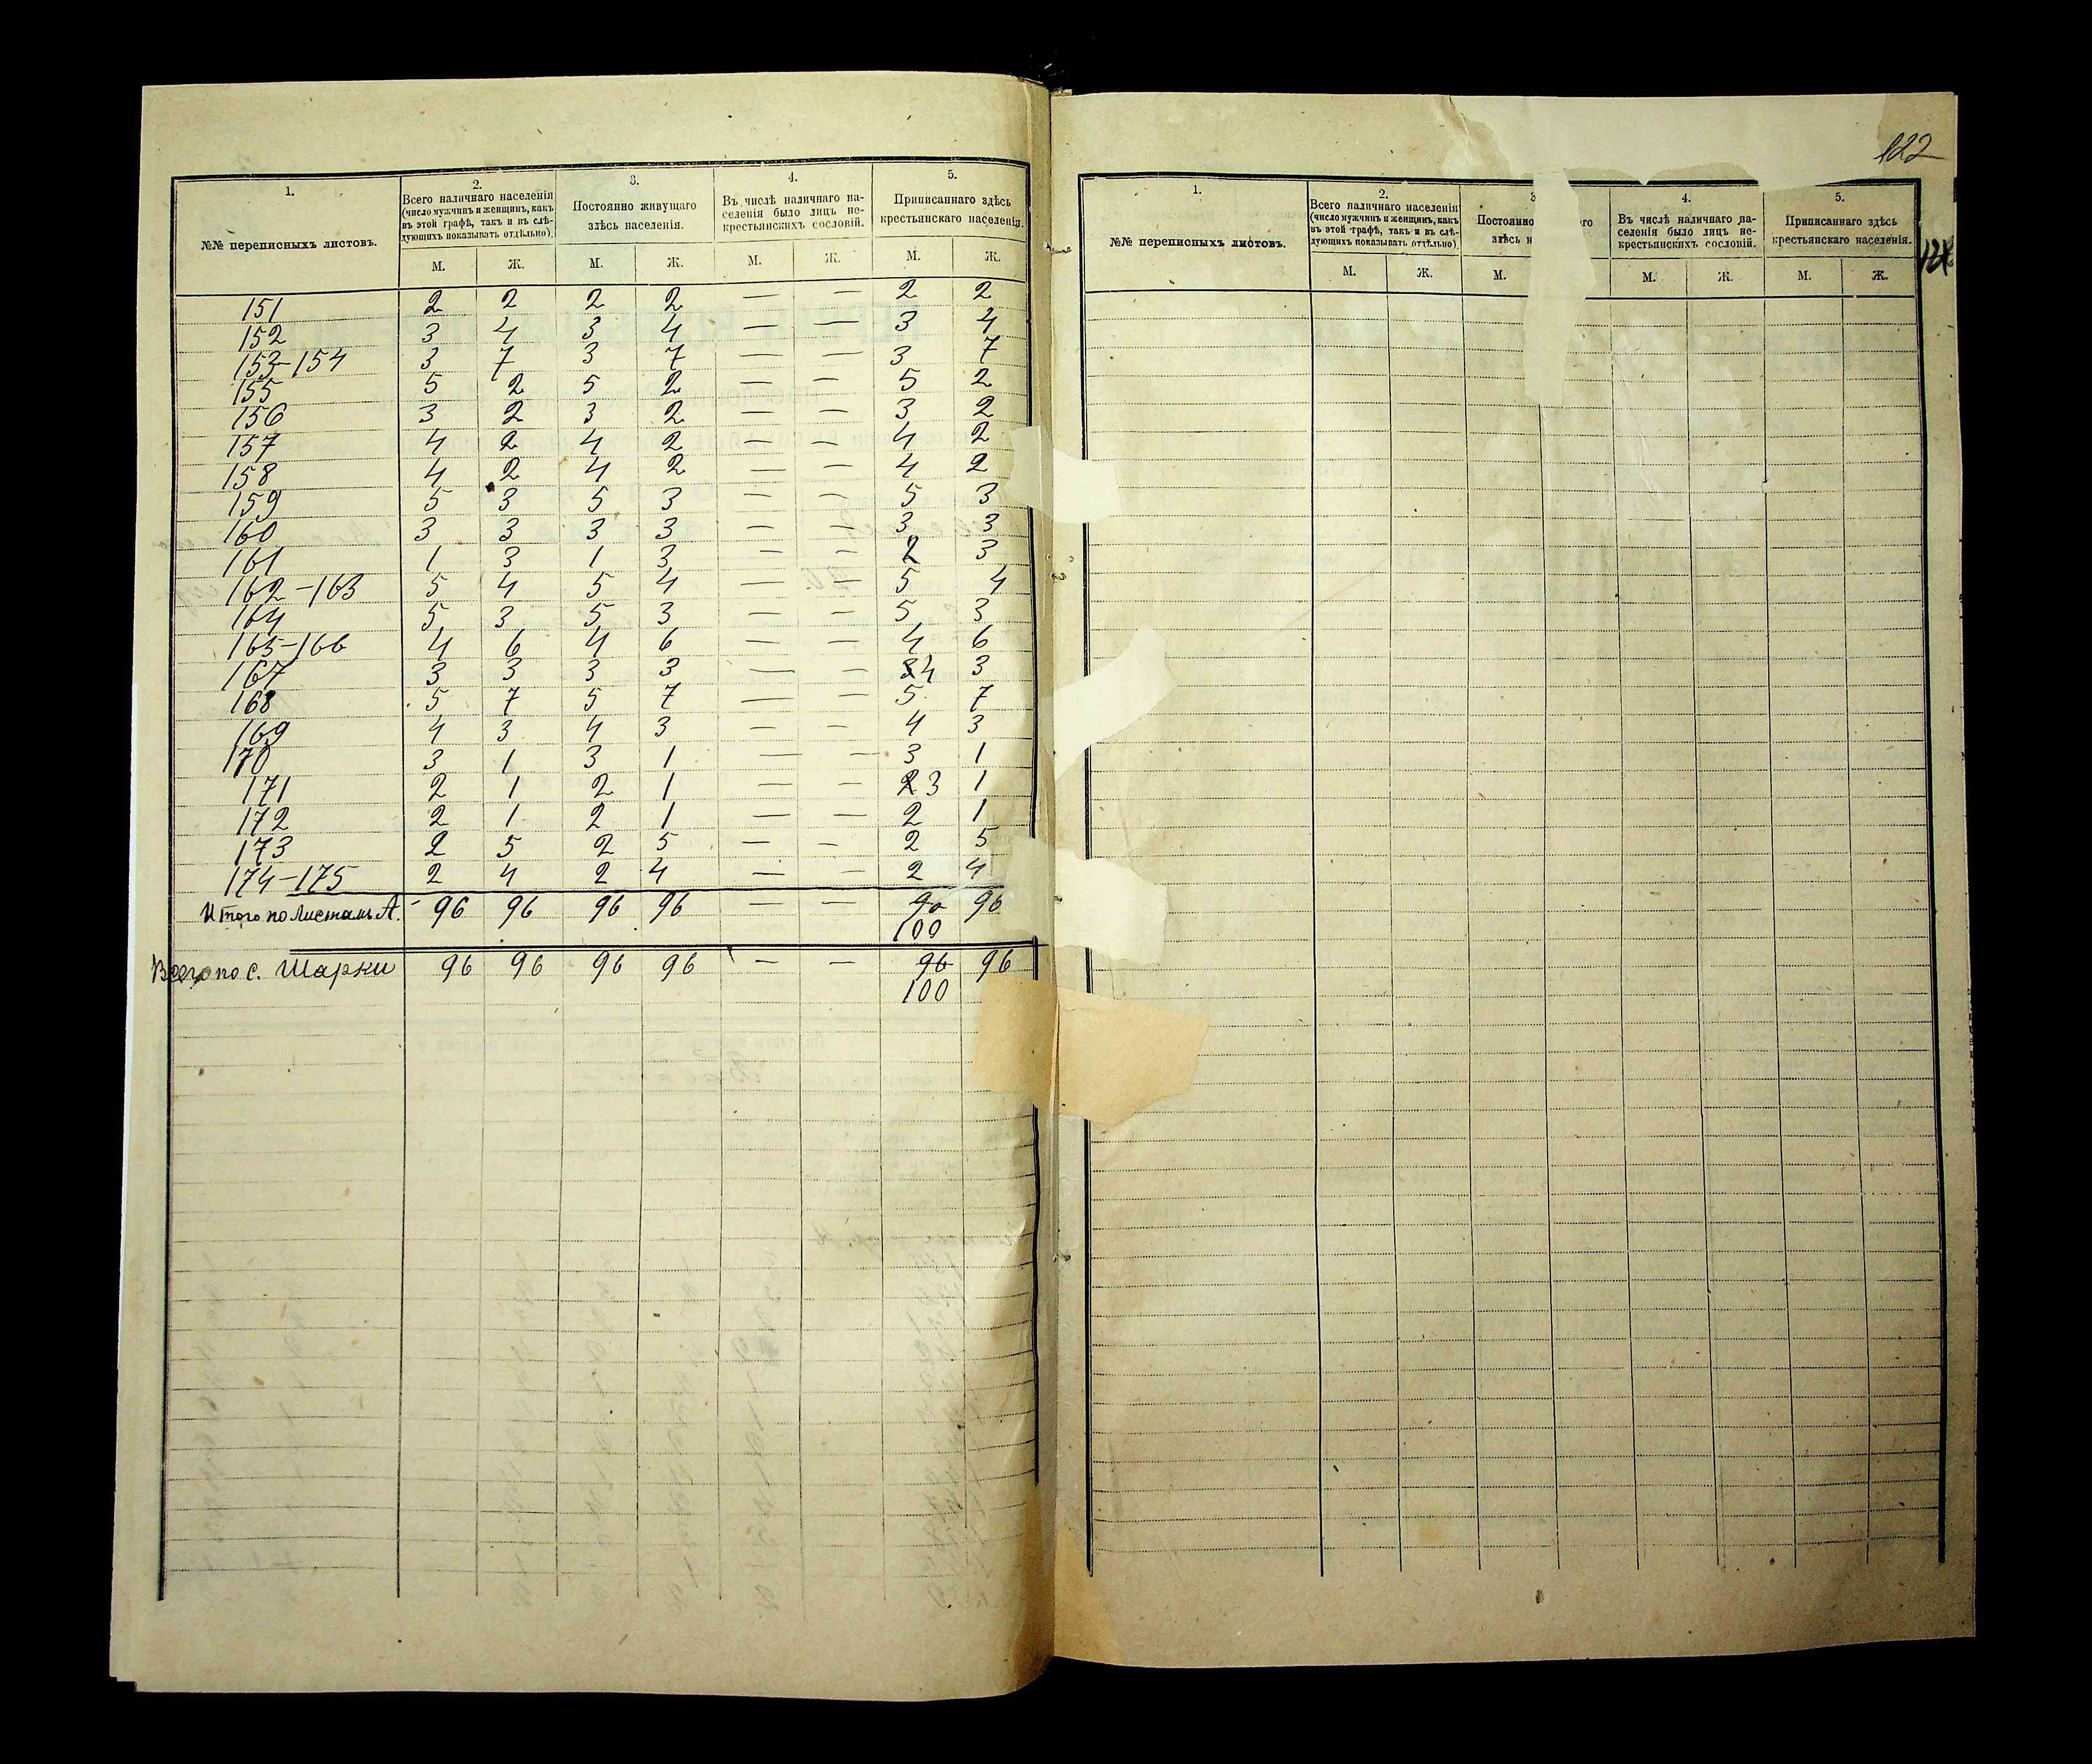 1.
№№ переписныхъ листовъ.
2.
Всего наличнаго населенія
(число мужчинъ и женщинъ, какъ
въ этой графѣ, такъ и въ слѣ-
дующихъ показывать отдѣльно).
3.
Постоянно живущаго
здѣсь населенія.
4.
Въ числѣ наличнаго на-
селенія было лицъ не-
крестьянскихъ сословій.
5.
Приписаннаго здѣсь
крестьянскаго населенія.
М. Ж. М. Ж. М. Ж. М. Ж.
151 2 2 2 2 — — 2 2
152 3 4 3 4 — — 3 4
153-154 3 7 3 7 — — 3 7
155 5 2 5 2 — — 5 2
156 3 2 3 2 — — 3 2
157 4 2 4 2 — — 4 2
158 4 2 4 2 — — 4 2
159 5 3 5 3 — — 5 3
160 3 3 3 3 — — 3 3
161 1 3 1 3 — — 2 3
162-163 5 4 5 4 — — 5 4
164 5 3 5 3 — — 5 3
165-166 4 6 4 6 — — 4 6
167 3 3 3 3 — — 3 4 3
168 5 7 5 7 — — 5 7
169 4 3 4 3 — — 4 3
170 3 1 3 1 — — 3 1
171 2 1 2 1 — — 2 3 1
172 2 1 2 1 — — 2 1
173 2 5 2 5 — — 2 5
174-175 2 4 2 4 — — 2 4
Итого по листамъ А. 96 96 96 96 — — 96
100
Всего по с. Шарки 96 96 96 96 — — 96 96
100
122
1.
№№ переписныхъ листовъ.
2.
Всего наличнаго населенія
(число мужчинъ и женщинъ, какъ
въ этой графѣ, такъ и въ слѣ-
дующихъ показывать отдѣльно).
3
Постоянно го
здѣсь н
4.
Въ числѣ наличнаго на-
селенія было лицъ не-
крестьянскихъ сословій.
5.
Приписаннаго здѣсь
крестьянскаго населенія.
М. Ж. М. М. Ж. М. Ж.